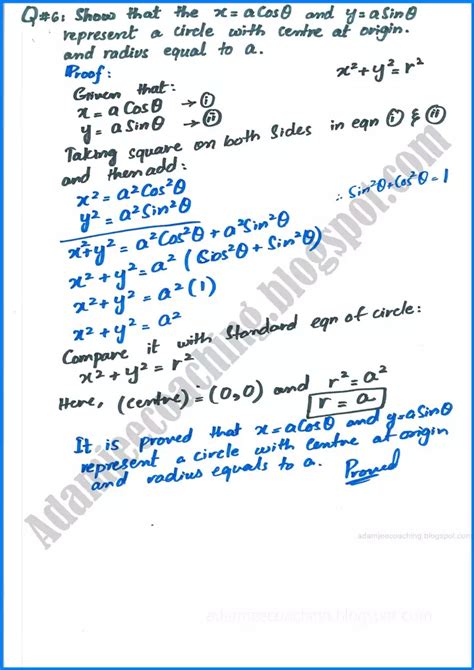 Q#6: Show that the x = a Cosθ and y = a Sinθ
represent a circle with centre at origin.
and radius equal to a.
Proof: x² + y² = r²
Given that:
x = a Cosθ → (i)
y = a Sinθ → (ii)
Taking square on both sides in eqn (i) & (ii)
and then add:
x² = a² Cos²θ
y² = a² Sin²θ ∴ Sin²θ + Cos²θ = 1
x² + y² = a² Cos²θ + a² Sin²θ
x² + y² = a² (Cos²θ + Sin²θ)
x² + y² = a² (1)
x² + y² = a²
Compare it with Standard eqn of circle:
x² + y² = r²
Here, (centre) = (0,0) and r² = a²
r = a
It is proved that x = a Cosθ and y = a Sinθ
represent a circle with centre at origin
and radius equals to a. Proved
Adamjeecoaching.blogspot.com
adamjeecoaching.blogspot.com
adamjeecoaching.blogspot.com